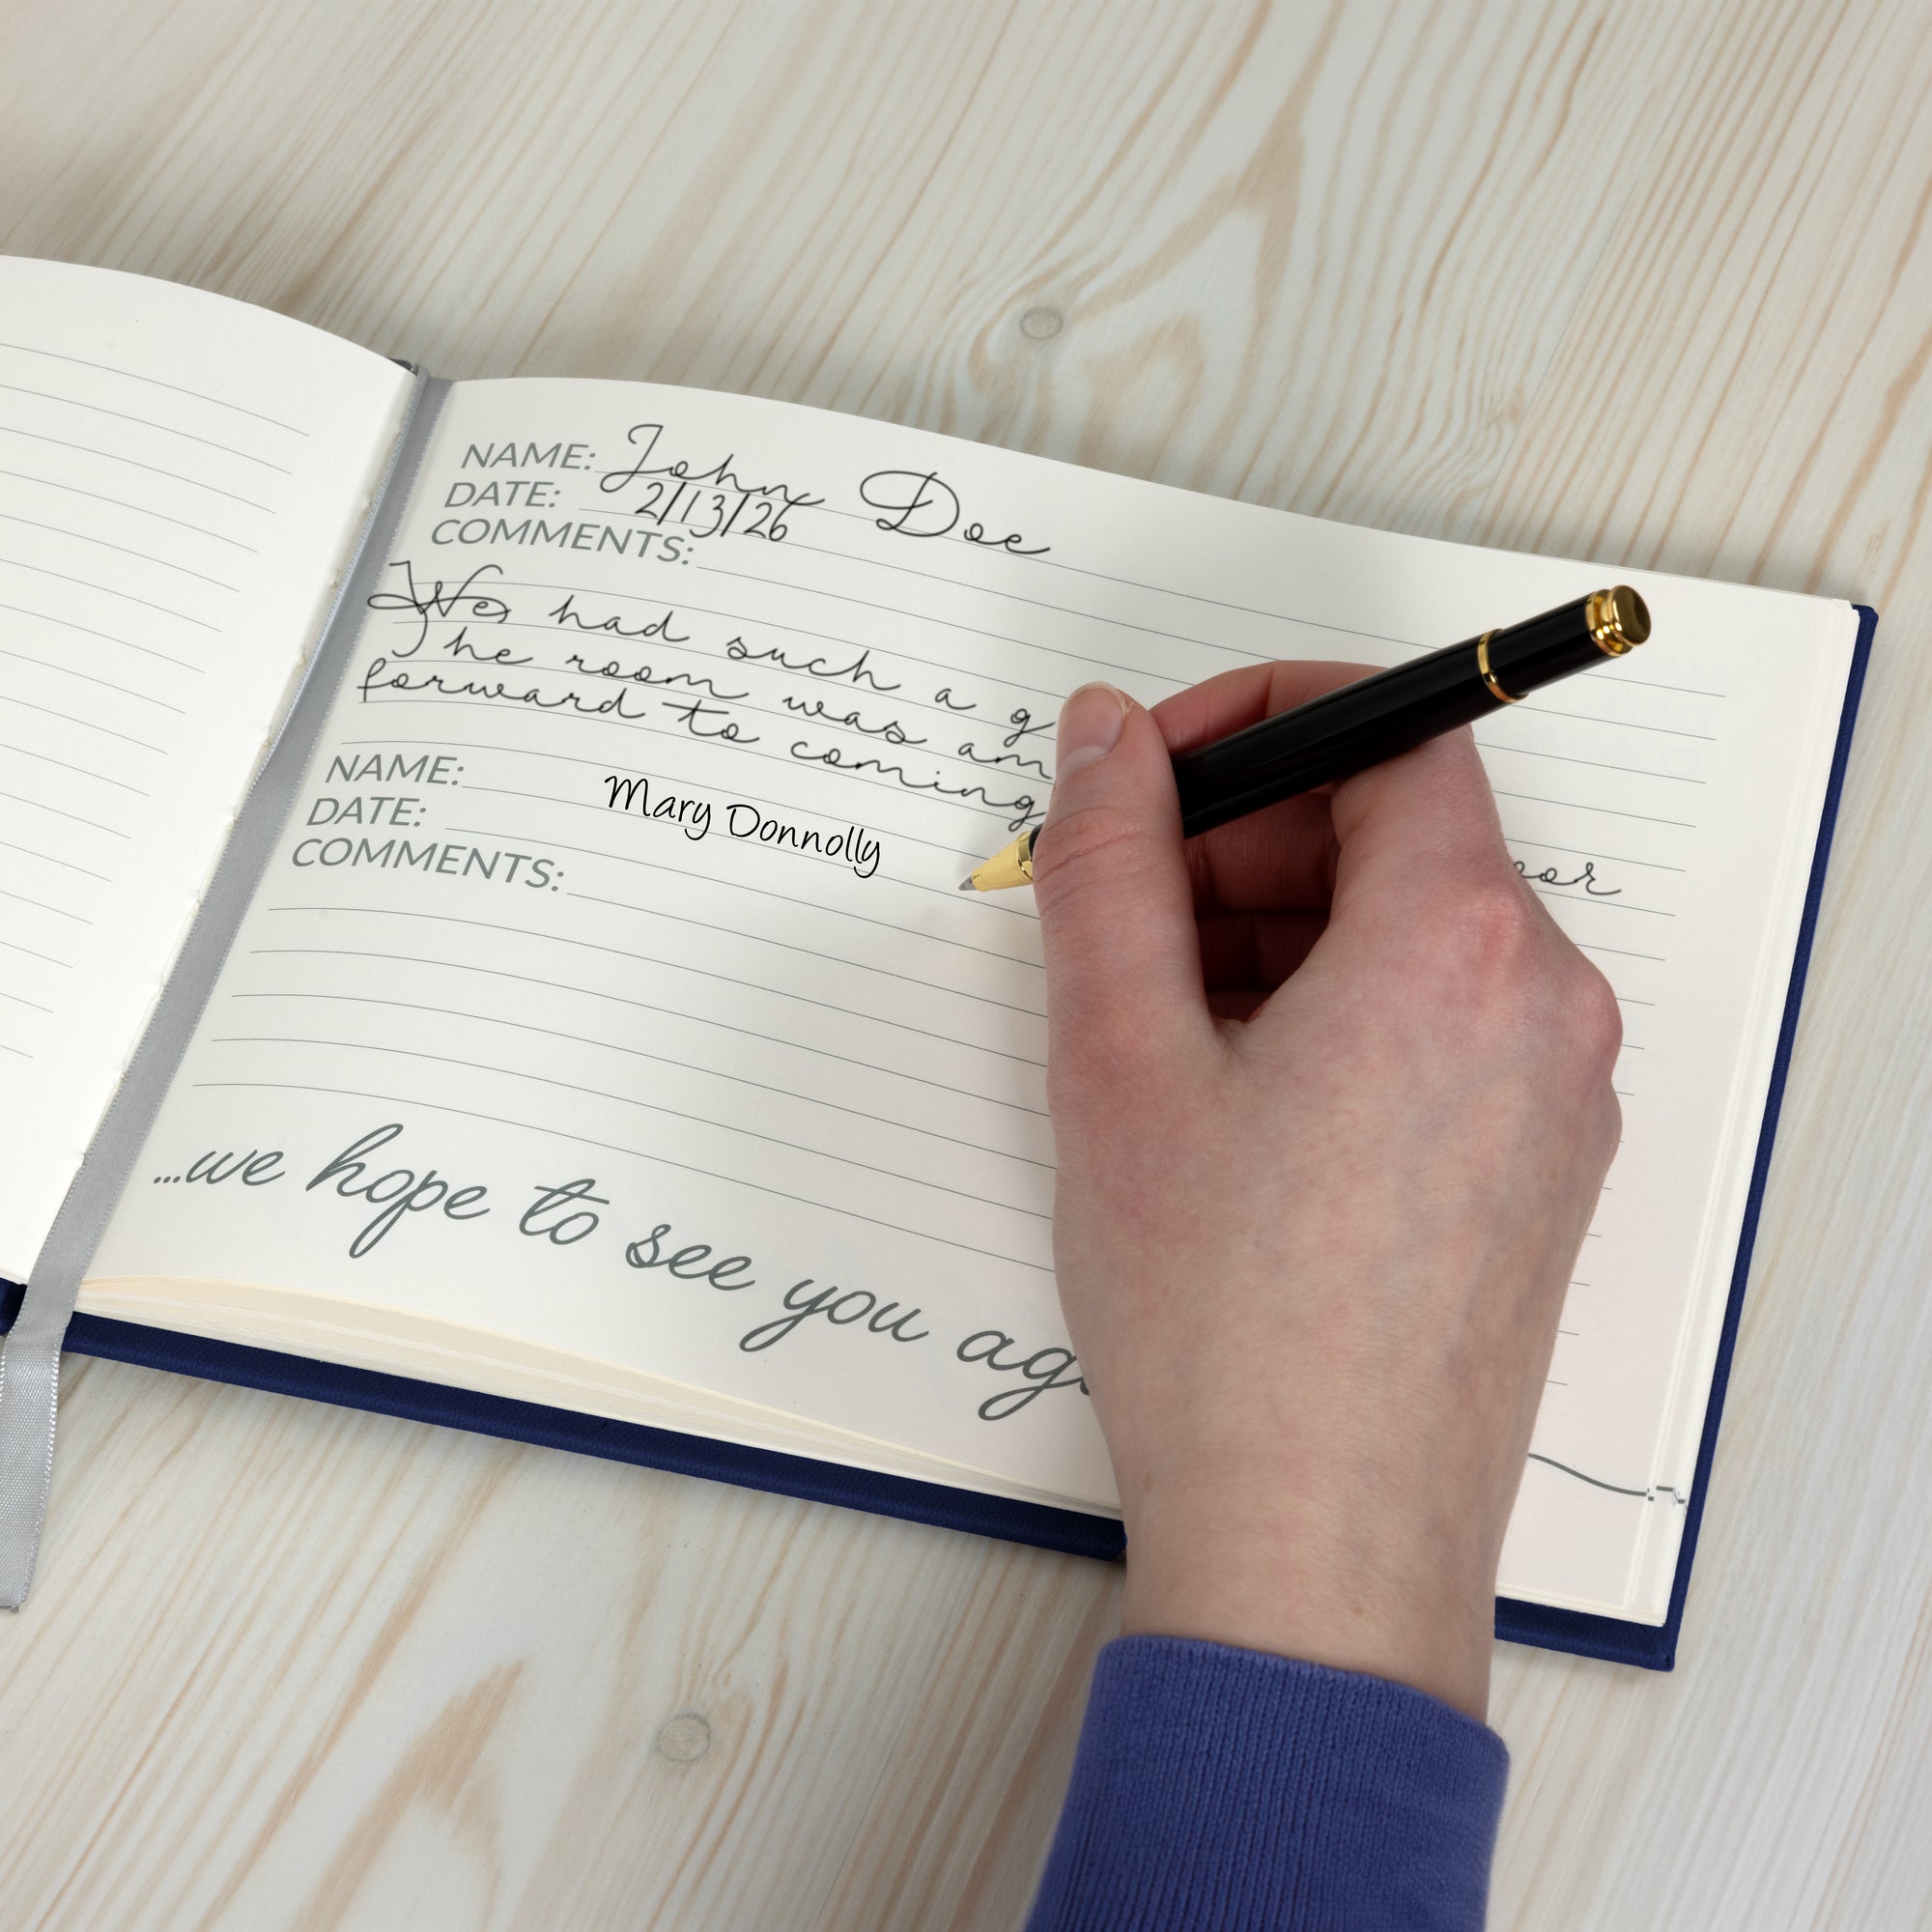 NAME: John Doe
DATE: 2/13/26
COMMENTS:
We had such a
The room was
forward to coming
NAME: Mary Donnolly
DATE:
COMMENTS:
...we hope to see you